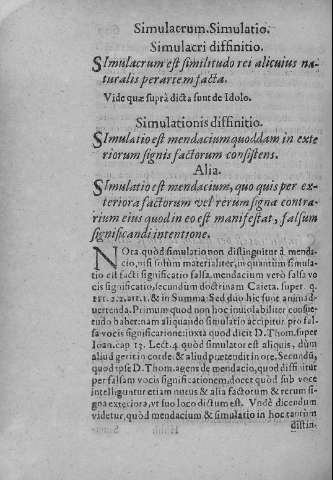 Simulacrum. Simulatio.
Simulacri diffinitio.
SImulacrum est similitudo rei alicuius na-
turalis per artem facta.
Vide quæ suprà dicta sunt de Idolo.
Simulationis diffinitio.
SImulatio est mendacium quoddam in exte
riorum signis factorum consistens.
Alia.
SImulatio est mendacium, quo quis per ex-
teriora factorum vel rerum signa contra-
rium eius quod in eo est manifestat, falsum
significandi intentione.
NOta. quòd simulatio non distinguitur à menda-
cio, nisi solùm materialiter, in quantùm simula-
tio est facti significatio falsa. mendacium verò falsa vo
cis significatio, secundùm doctrinam Caieta. super q.
111. 2.2. art. 1. & in Summa. Sed duo hîc sunt animad-
uertenda. Primum quod non hoc inuiolabiliter consue-
tudo habet: nam aliquando simulatio accipitur pro fal-
sa vocis significatione: iuxta quod dicit D. Thom. super
Ioan. cap. 13. Lect. 4. quòd simulator est aliquis, dùm
aliud gerit in corde. & aliud prætendit in ore. Secundũ,
quòd ipse D. Thom. agens de mendacio, quod diffinitur
per falsam vocis significationem, docet quòd sub voce
intelliguntur etiam nutus & alia factorum & rerum si-
gna exteriora, vt suo loco dictum est. Vnde dicendum
videtur, quòd mendacium & simulatio in hoc tantùm
distin-